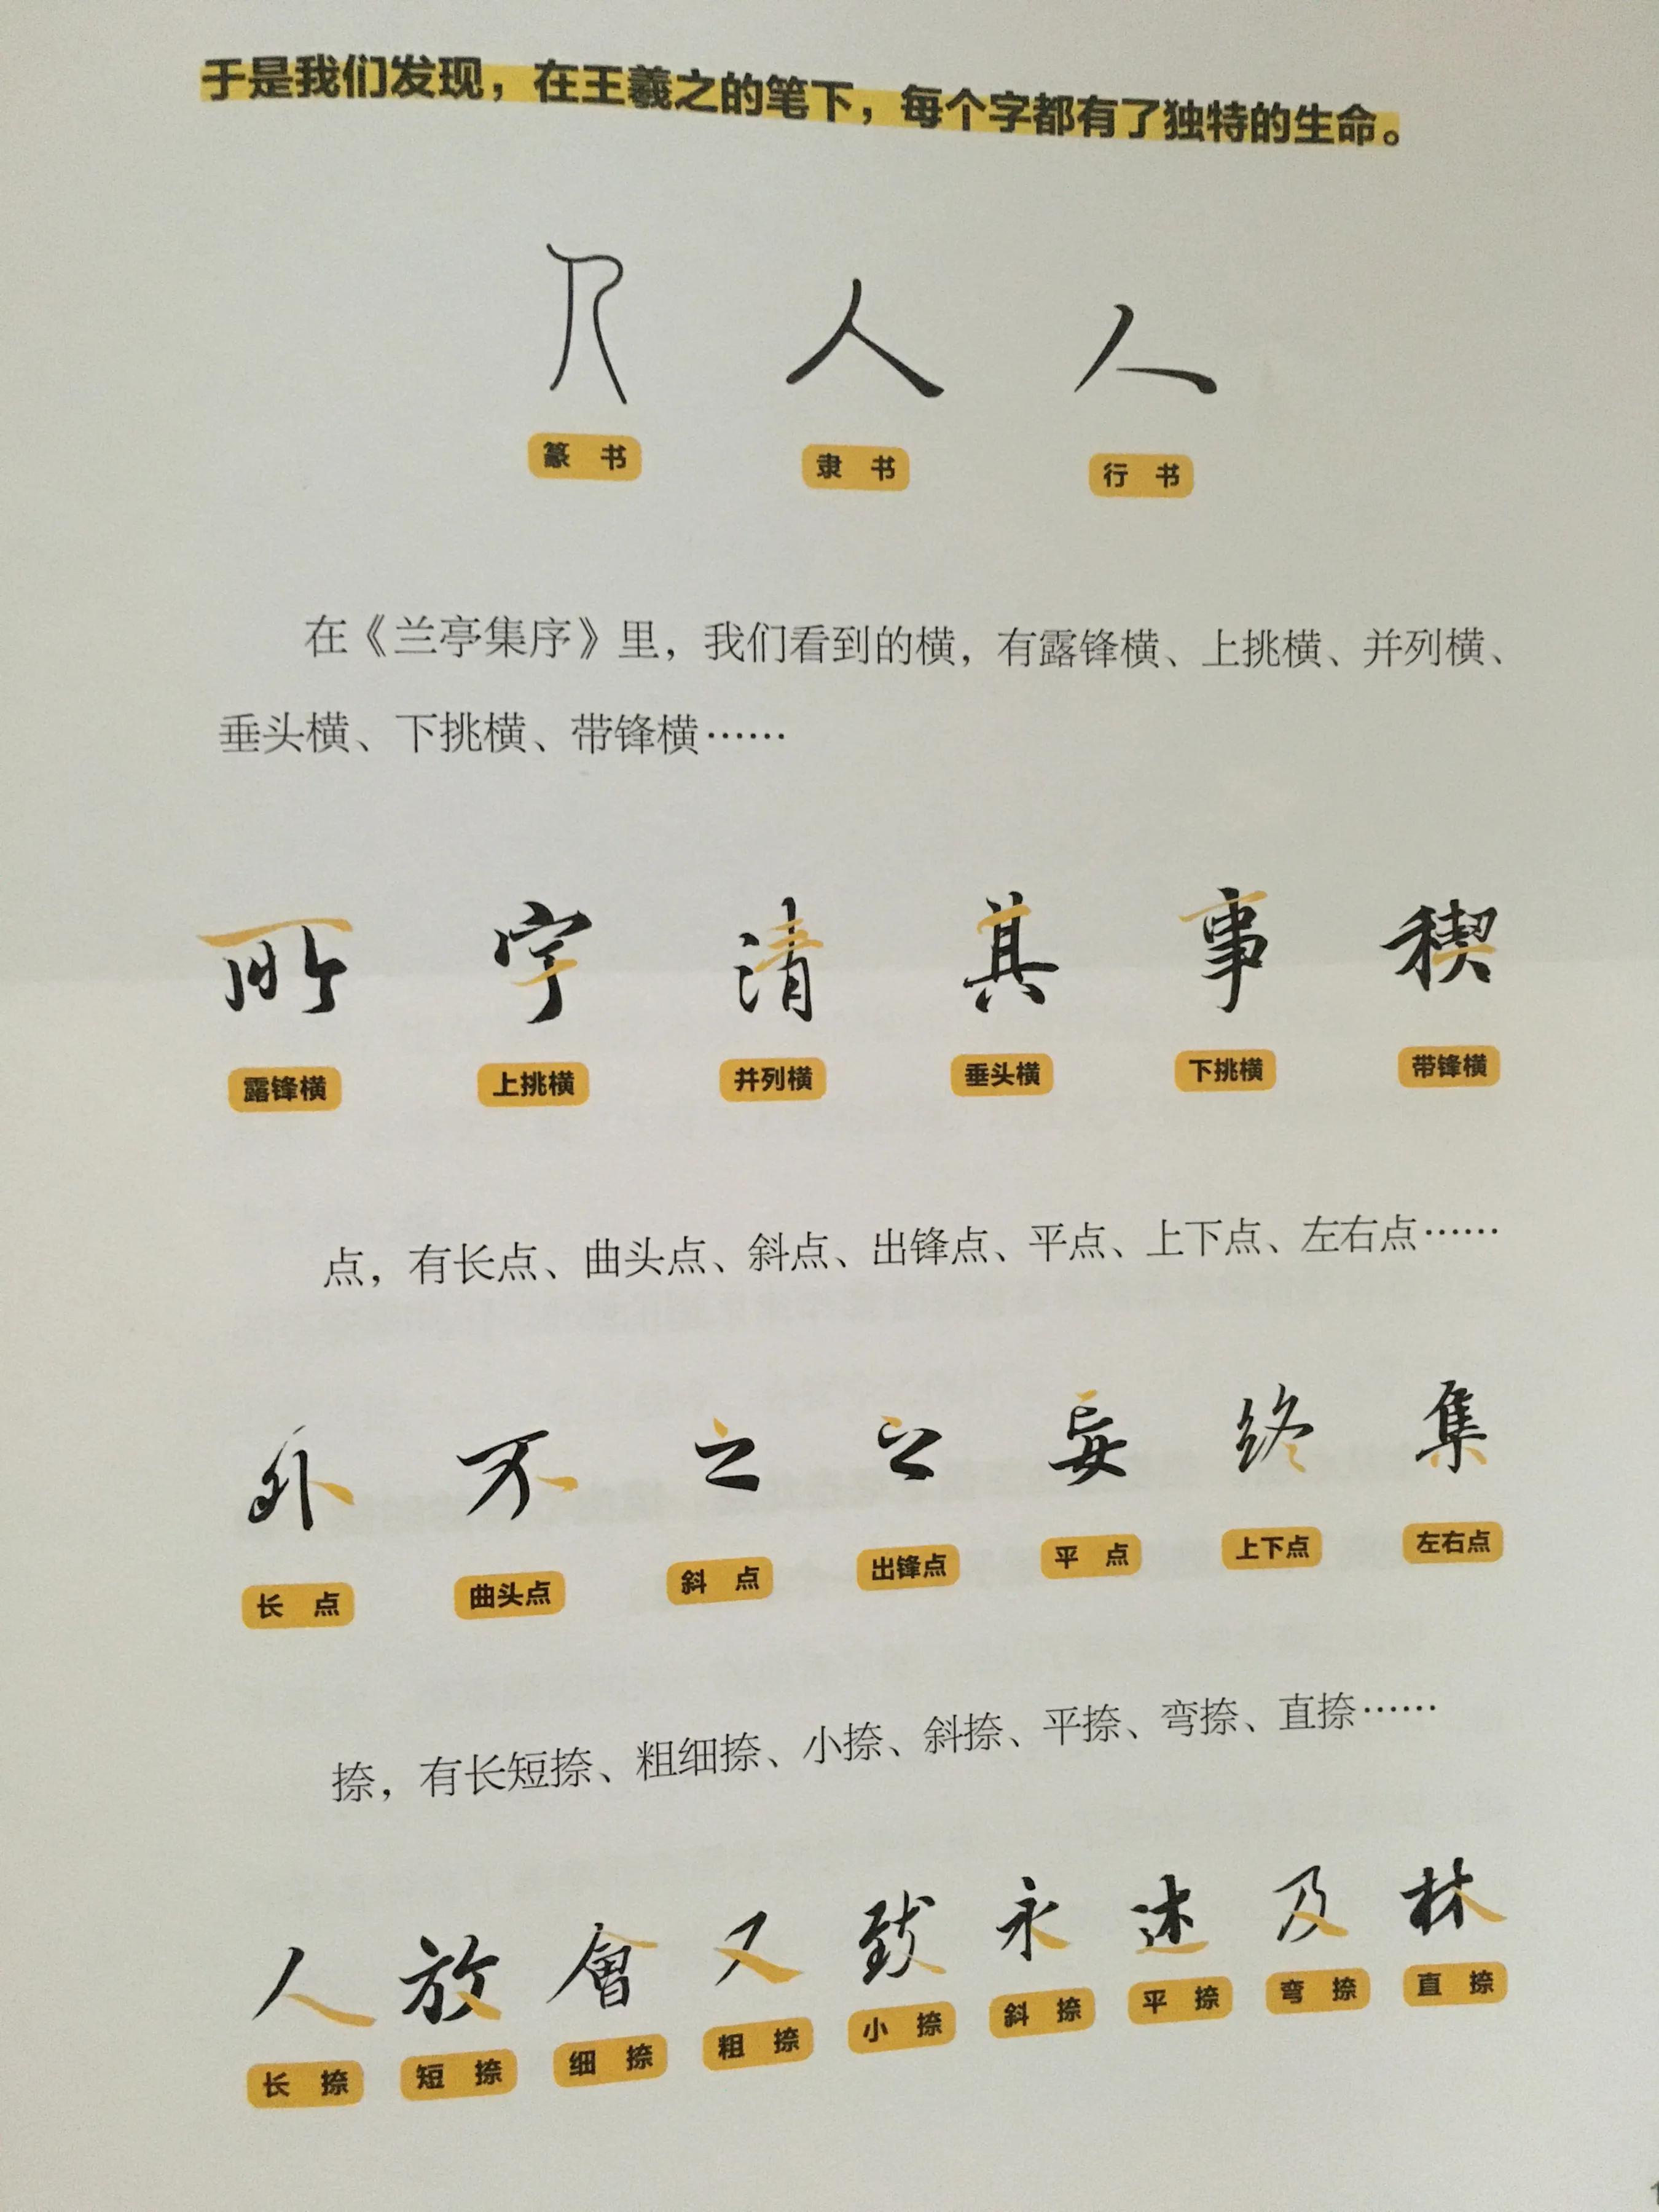 于是我们发现，在王羲之的笔下，每个字都有了独特的生命。
人 人 人
篆书 隶书 行书
在《兰亭集序》里，我们看到的横，有露锋横、上挑横、并列横、
垂头横、下挑横、带锋横……
所 字 清 其 事 稧
露锋横 上挑横 并列横 垂头横 下挑横 带锋横
点，有长点、曲头点、斜点、出锋点、平点、上下点、左右点……
外 不 之 之 妄 终 集
长点 曲头点 斜点 出锋点 平点 上下点 左右点
捺，有长短捺、粗细捺、小捺、斜捺、平捺、弯捺、直捺……
人 放 會 又 致 永 述 及 林
长捺 短捺 细捺 粗捺 小捺 斜捺 平捺 弯捺 直捺